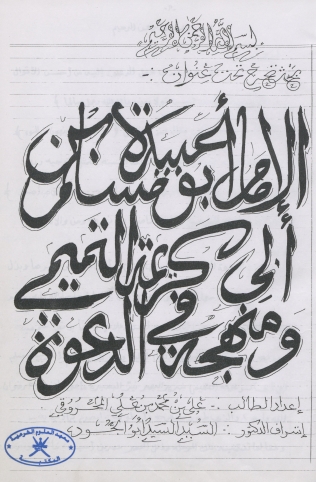 بسم الله الرحمن الرحيم
بحث تخرج تحت عنوان :-
الإمام أبو عبيدة مسلم بن
أبي كريمة التميمي
ومنهجه في الدعوة
إعداد الطالب :- علي بن محمد بن علي المحروقي
إشراف الدكتور :- السيد السيد أبو الجود
معهد العلوم الشرعية